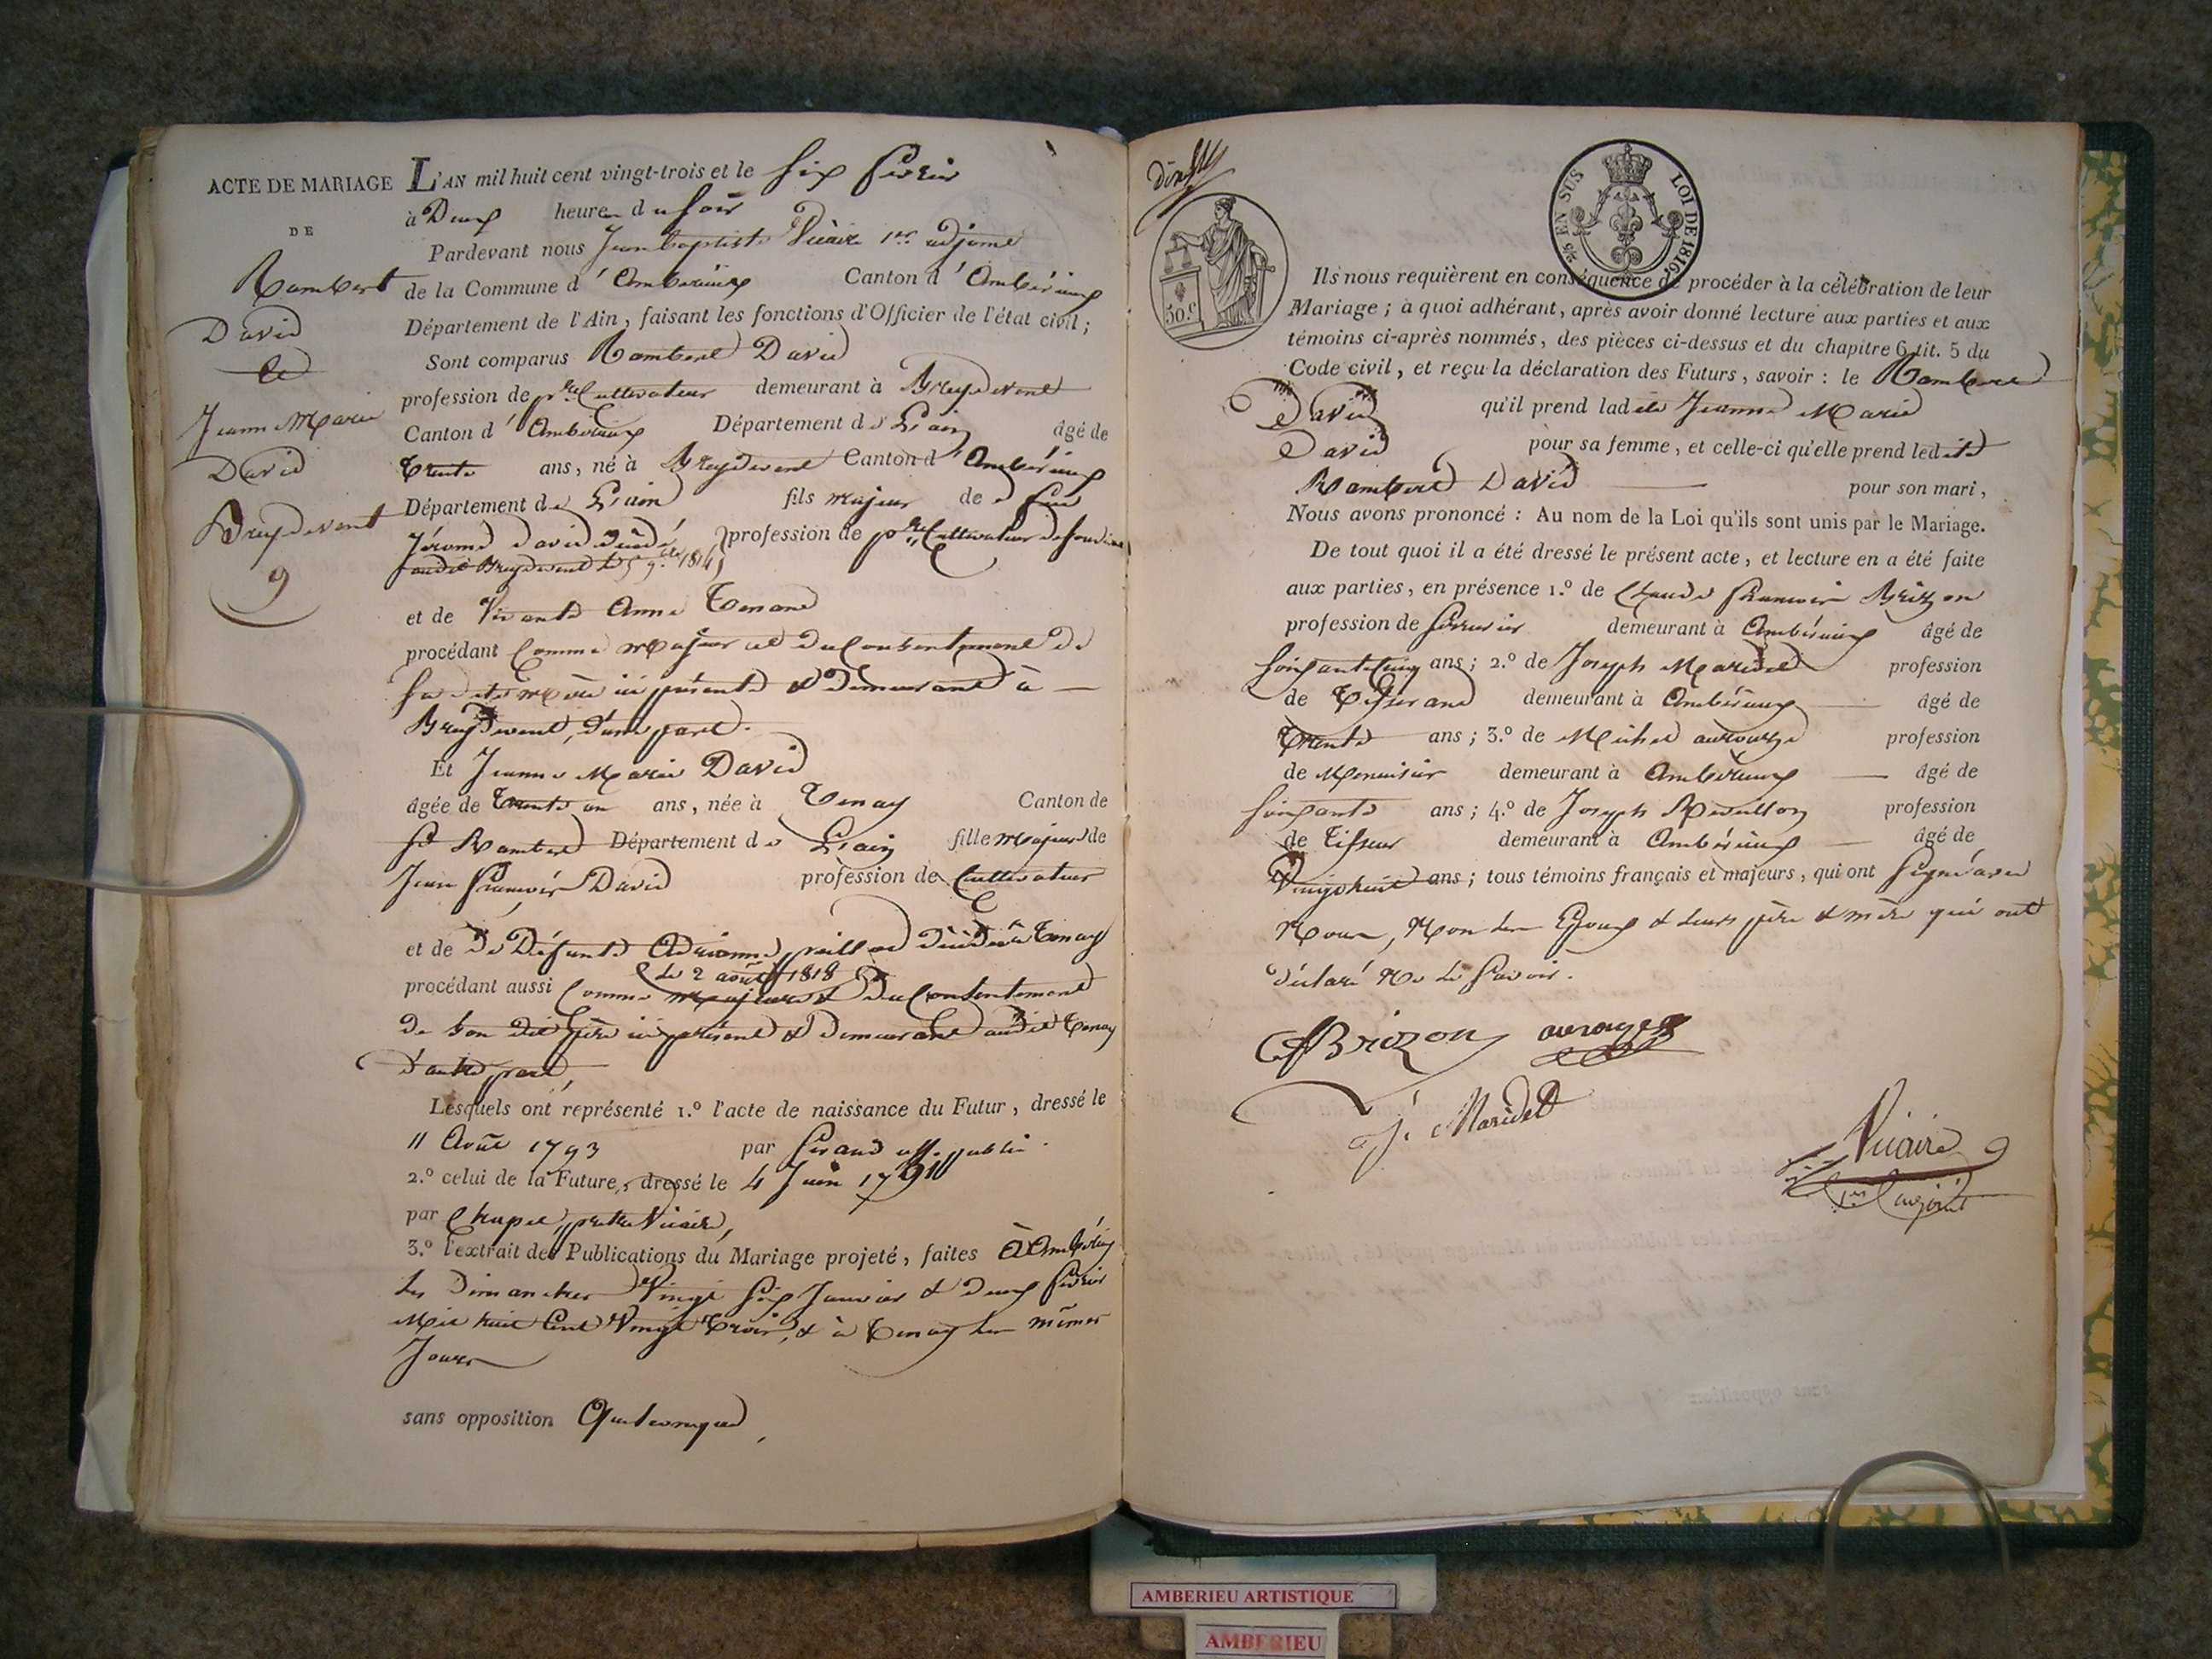 ACTE DE MARIAGE
DE
Rambert
David
et
Jeanne Marie
David
Breydevent
9
L'AN mil huit cent vingt-trois et le Six fevrier
à Deux heures du soir
Pardevant nous Jean baptiste Vicaire 1er adjoint
de la Commune d'Ambérieux Canton d'Ambérieux
Département de l'Ain, faisant les fonctions d'Officier de l'état civil;
Sont comparus Rambert David
profession de pre Cultivateur demeurant à Breydevent
Canton d'Ambérieux Département de L'ain âgé de
trente ans, né à Breydevent Canton d'Ambérieux
Département de L'ain fils majeur de feu
Jérome david décédé profession de pre Cultivateur
audit Breydevent le 5 9bre 1814
et de Vivante Anne Tenand
procédant Comme Majeur et du Consentement de
sa dite mère ici présente & demeurant à
Breydevent, d'une part.
Et Jeanne Marie David
âgée de trente un ans, née à Tenay Canton de
St Rambert Département de L'ain fille majeure de
Jean François David profession de Cultivateur
et de Défunte Adrianne décédée à Tenay
le 2 août 1818
procédant aussi Comme Majeure & du Consentement
de son dit père ici présent & demeurant audit Tenay
d'autre part,
Lesquels ont représenté 1.º l'acte de naissance du Futur, dressé le
11 Août 1793 par off. public.
2.º celui de la Future, dressé le 4 Juin 1791
par Chapel, prêtre Vicaire,
3.º l'extrait des Publications du Mariage projeté, faites à Ambérieux
les Dimanches Vingt Six Janvier & deux fevrier
Mil huit Cent Vingt Trois, & à Tenay les mêmes
Jours
sans opposition Quelconque,
30.c
25 EN SUS LOI DE 1816
Ils nous requièrent en conséquence de procéder à la célébration de leur
Mariage; à quoi adhérant, après avoir donné lecture aux parties et aux
témoins ci-après nommés, des pièces ci-dessus et du chapitre 6 tit. 5 du
Code civil, et reçu la déclaration des Futurs, savoir: le Rambert
David qu'il prend ladite Jeanne Marie
David pour sa femme, et celle-ci qu'elle prend ledit
Rambert David pour son mari,
Nous avons prononcé: Au nom de la Loi qu'ils sont unis par le Mariage.
De tout quoi il a été dressé le présent acte, et lecture en a été faite
aux parties, en présence 1.º de Claude François Brizon
profession de serrurier demeurant à Ambérieux âgé de
soixante cinq ans; 2.º de Joseph Maridet profession
de Tisserand demeurant à Ambérieux âgé de
trente ans; 3.º de Michel profession
de Menuisier demeurant à Ambérieux âgé de
soixante ans; 4.º de Joseph Revillon profession
de Tisseur demeurant à Ambérieux âgé de
Vingt huit ans; tous témoins français et majeurs, qui ont signé avec
Nous, Non les Epoux & leurs père & mère qui ont
déclaré Ne le savoir.
CfBrizon
J. Maridet
Vicaire
1er adjoint
AMBERIEU ARTISTIQUE
AMBERIEU